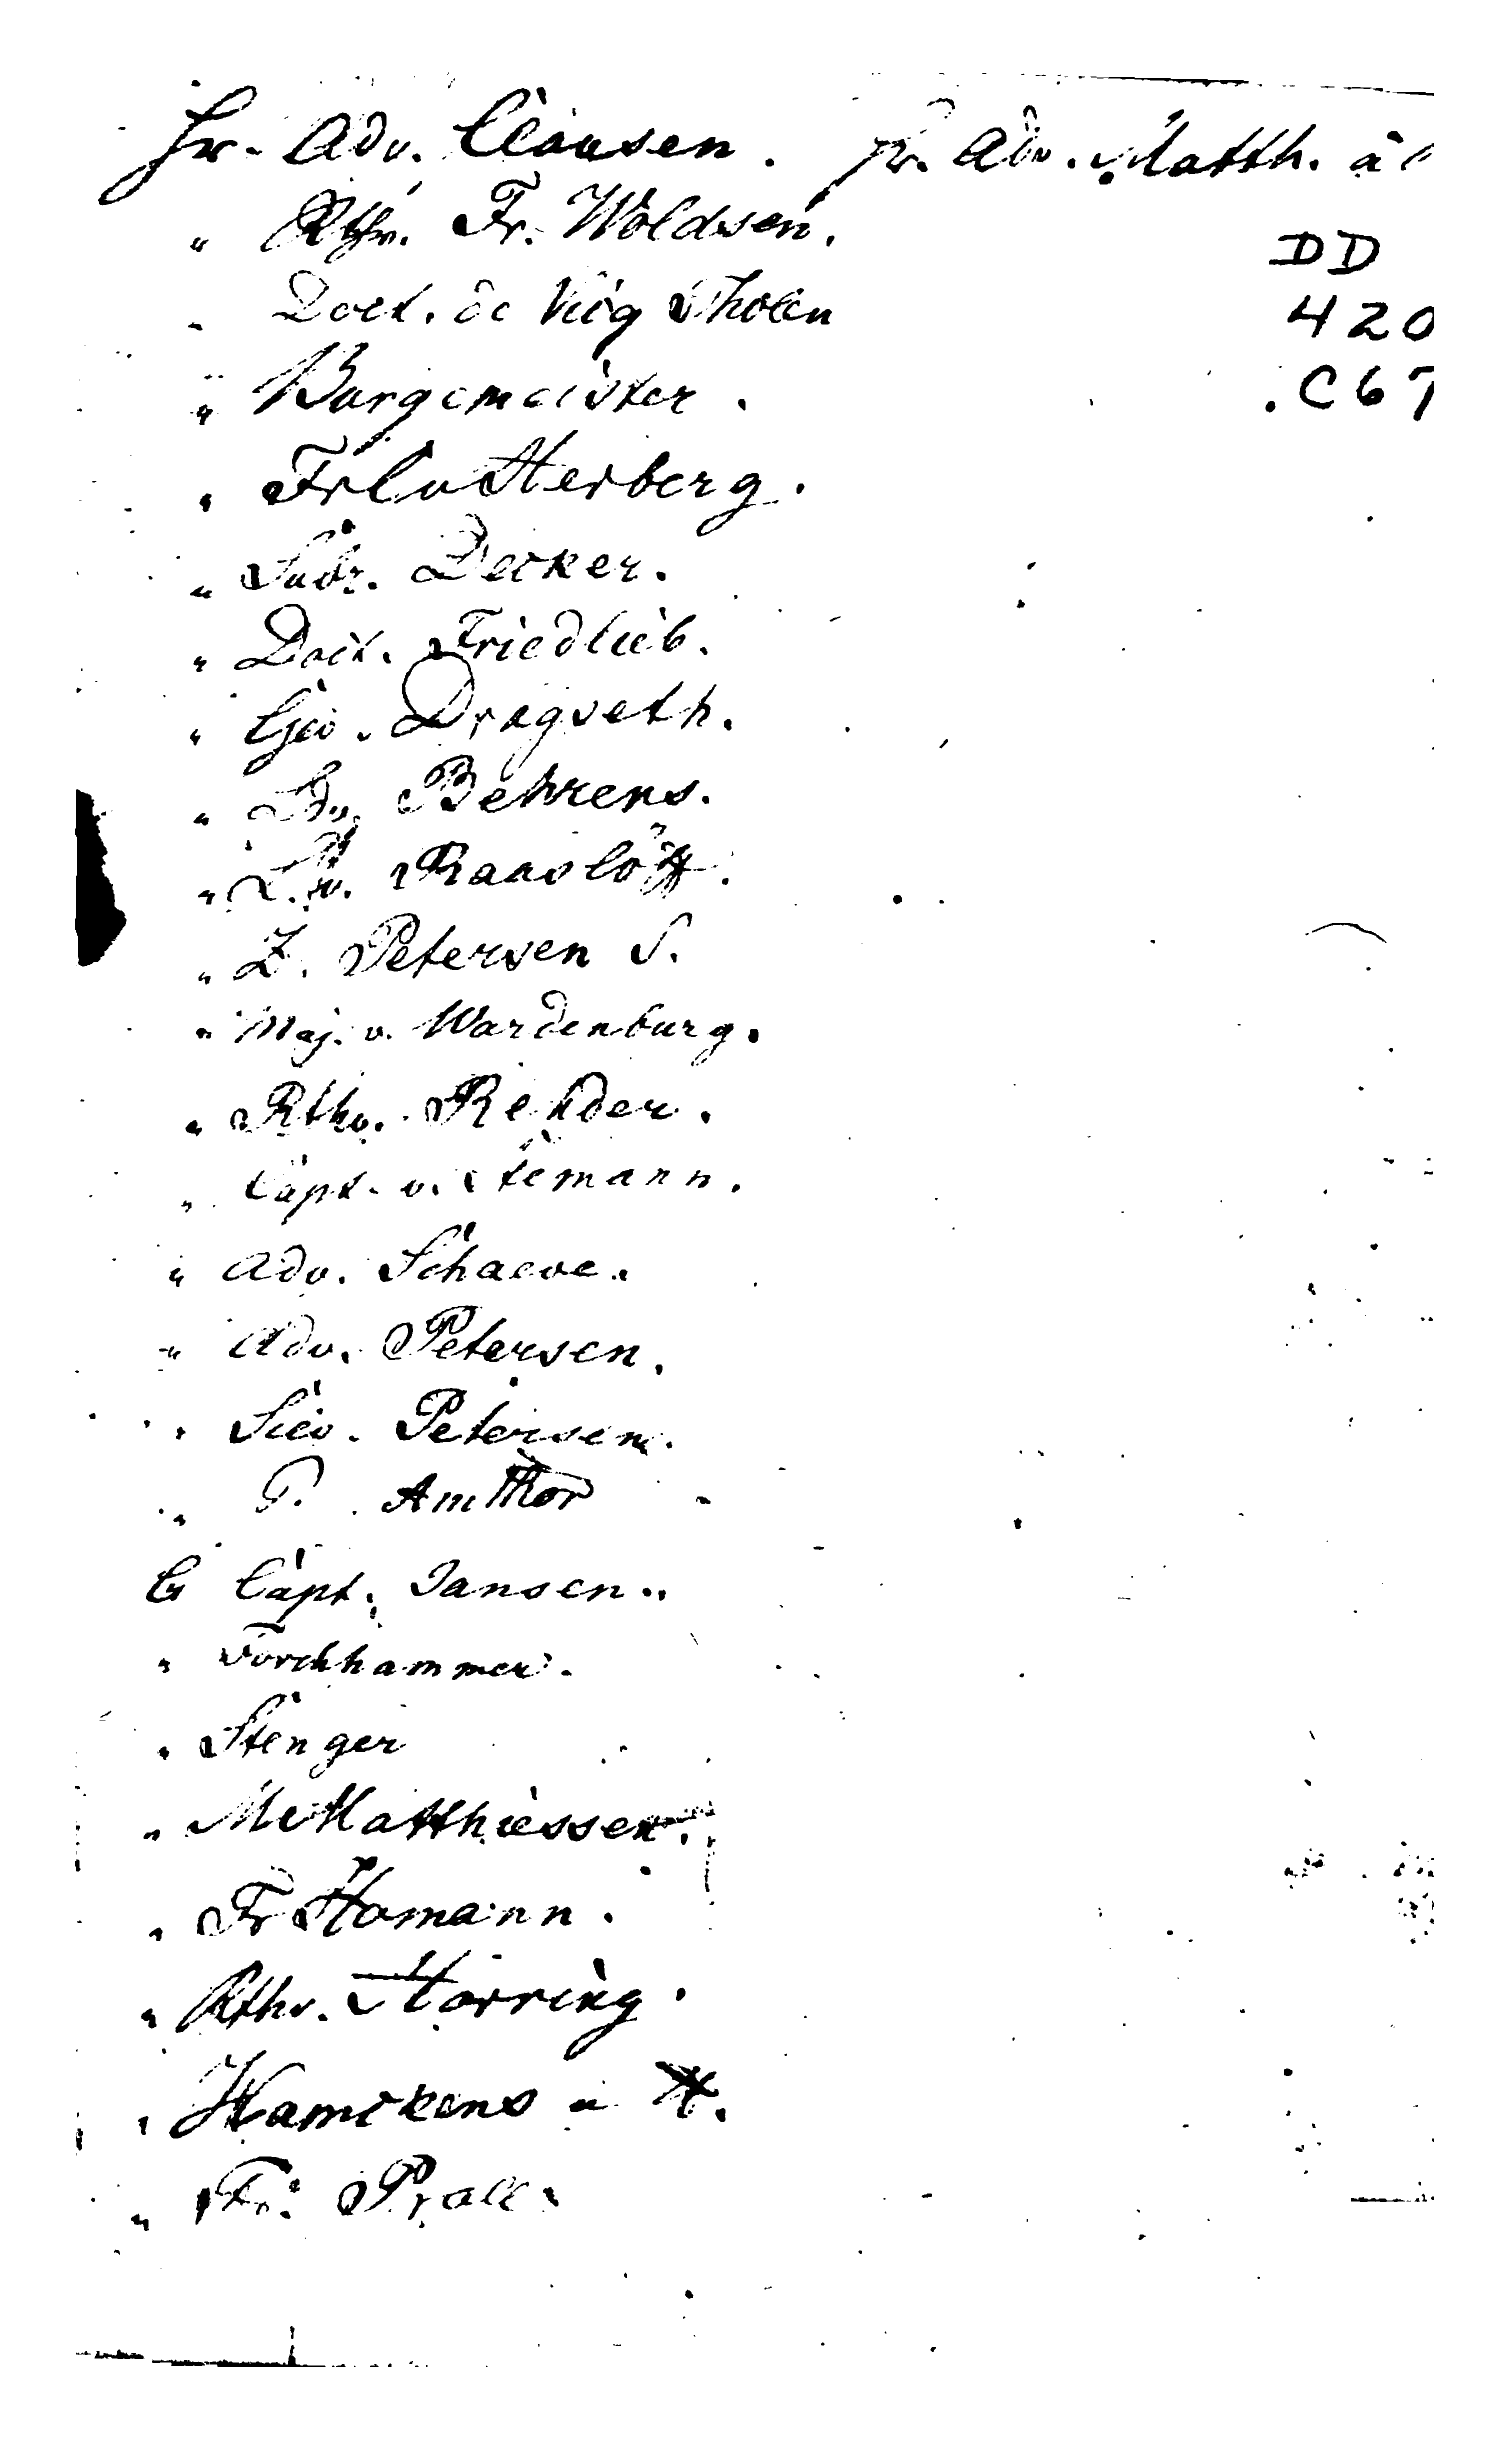 Hr. Adv. Clausen. Hr. Adv. Matth. à
" Rthv. Fr. Woldsen.
DD
" Doct. de Vög Tholen
420
" Burgemeister.
.C67
" Fr Herberg.
" Decker.
" Doct. Friedlieb.
" Dragseth.
" Behrens.
" Raaslöff.
" Z. Petersen S.
" Maj. v. Wardenburg.
" Rthv. Rehder.
" Capt. v. Stemann.
" Adv. Schaeve.
" Adv. Petersen.
" Siev. Petersen.
" P. Amthor
Capt. Jansen.
" Forchhammer.
" Stenger
" M Matthiessen.
" Fr Homann.
" Rthv. Horring.
" Hamckens
" Fr. Prall.